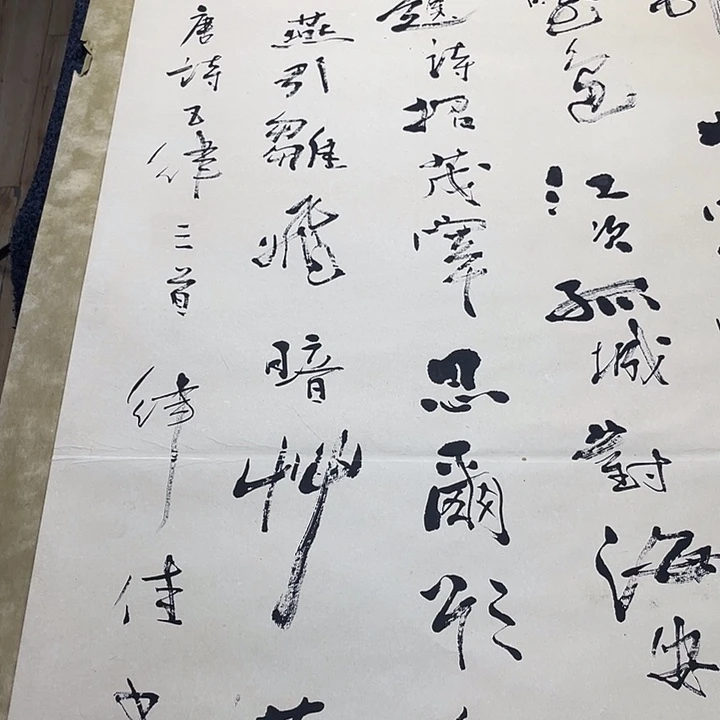 色江次孤城對海安
題詩招茂宰思爾欲
燕引雛飛暗艸
唐詩五律三首緯佳